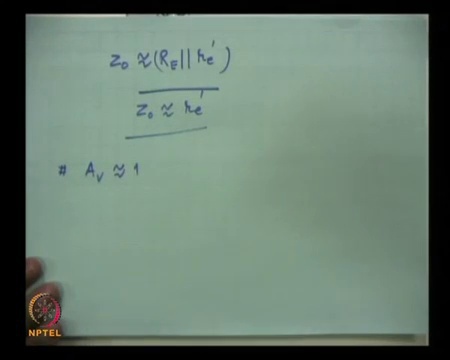 z₀ ≈ (R_E || r_e')
z₀ ≈ r_e'
# A_v ≈ 1
NPTEL